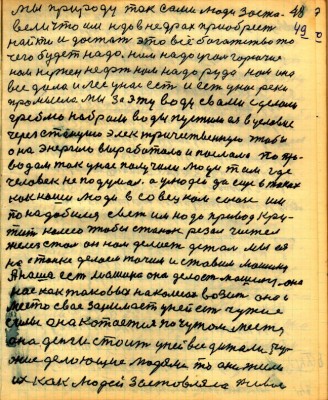 мы природу так сами люди Заста- 48
вели что им надо в недрах приобрест 49
найти и достат это всё богатство то
чего будет надо. нам надо угол горючия
нам нужен нефт нам надо руда нам она
все дала и лес у нас ест и ест у нас реки
промысла мы За эту воду свами сделали
греблю набрали воды пустили ея в условие
через станцию электричественную чтобы
она энергию выработала и послала по про-
водам так у нас получили люди там где
человек не подумал. а у людей да еще в таких
как наши люди в совецком союзе им
понадобился свет им надо привод кру-
тит колесо чтобы станок резал
железо стал он нам делает детал мы ея
на станке делаем точим и ставим машину
А наша ест машина она делает машину она
нас как таковых на колесо возит она
место свае занимает у ней ест чужие
силы она катается по чужом месте
она денги стоит у ней все детали чу-
жие делающие людями то они жили
их как людей Заставляла жива